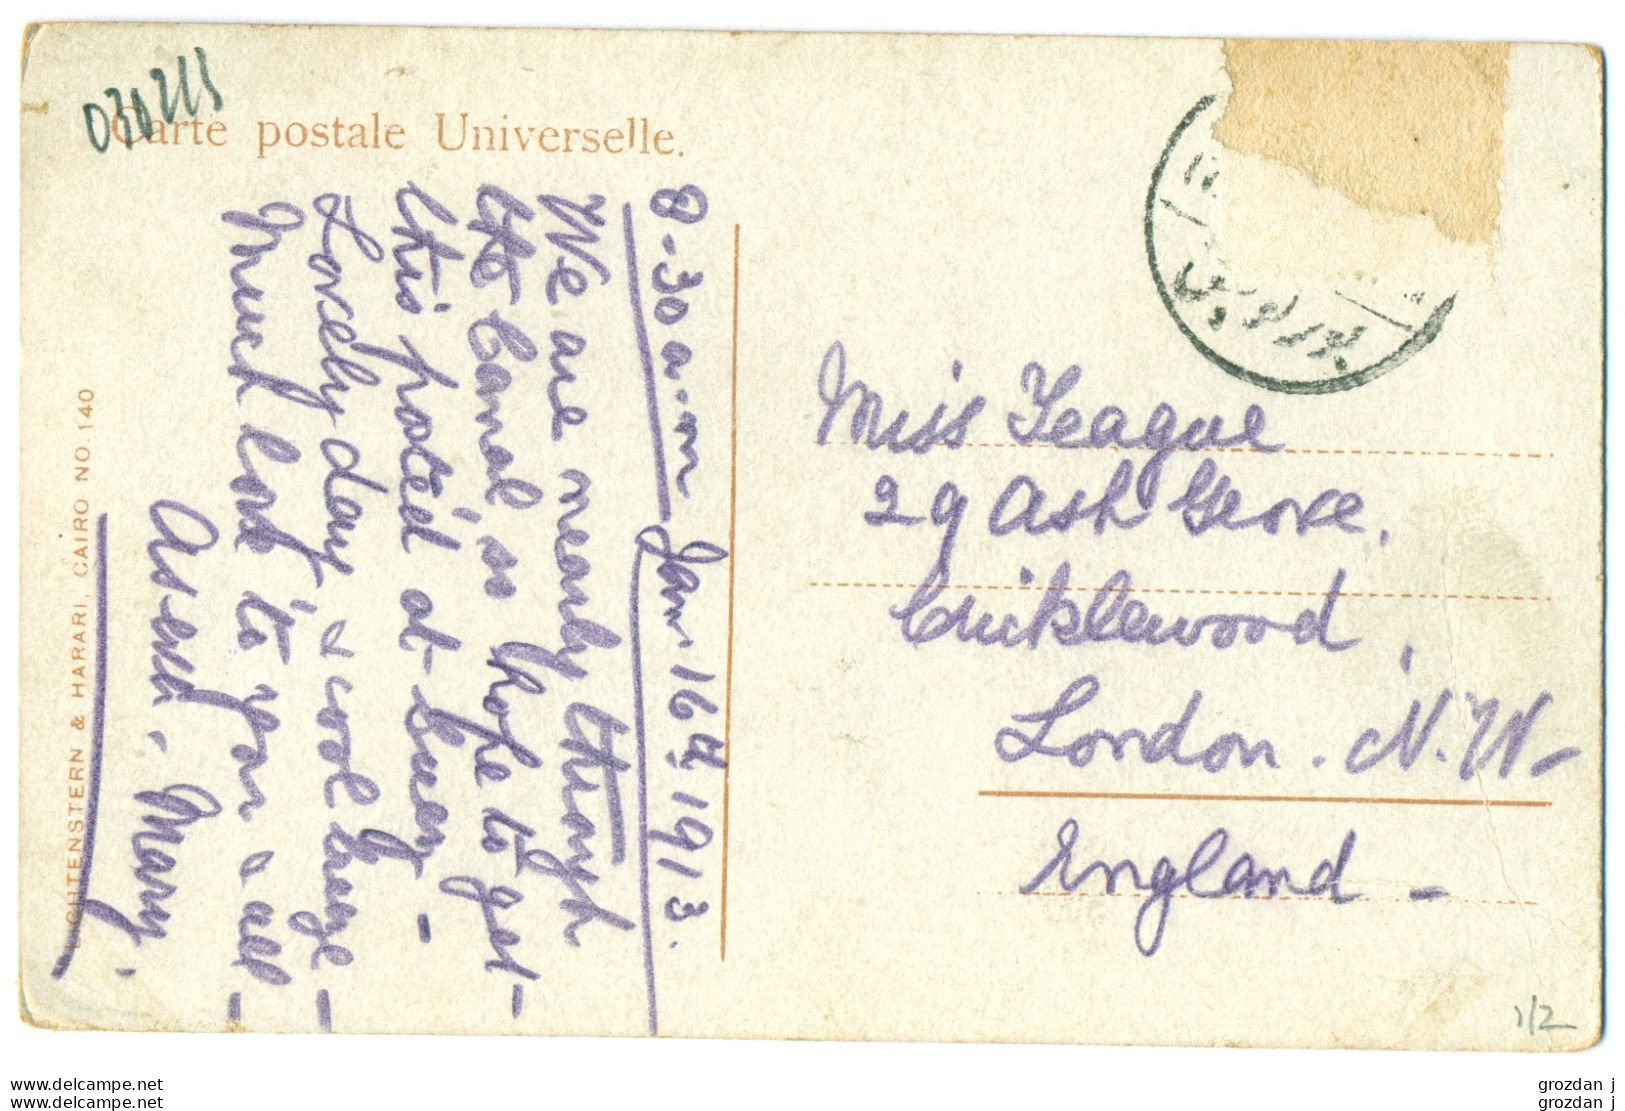 030215
Carte postale Universelle.
8-30 a.m Jan. 16th 1913.
We are nearly through
the Canal or hope to get
this posted at Suez -
Lovely day & cool breeze -
Much love to you & all -
As ever, Mary.
LICHTENSTERN & HARARI, CAIRO NO. 140
بور توفيق
Miss Teague
29 Ash Grove,
Cricklewood,
London. N.W-
England -
1/2
andylcpc.net
andylcpc.net
grozdan j
grozdan j